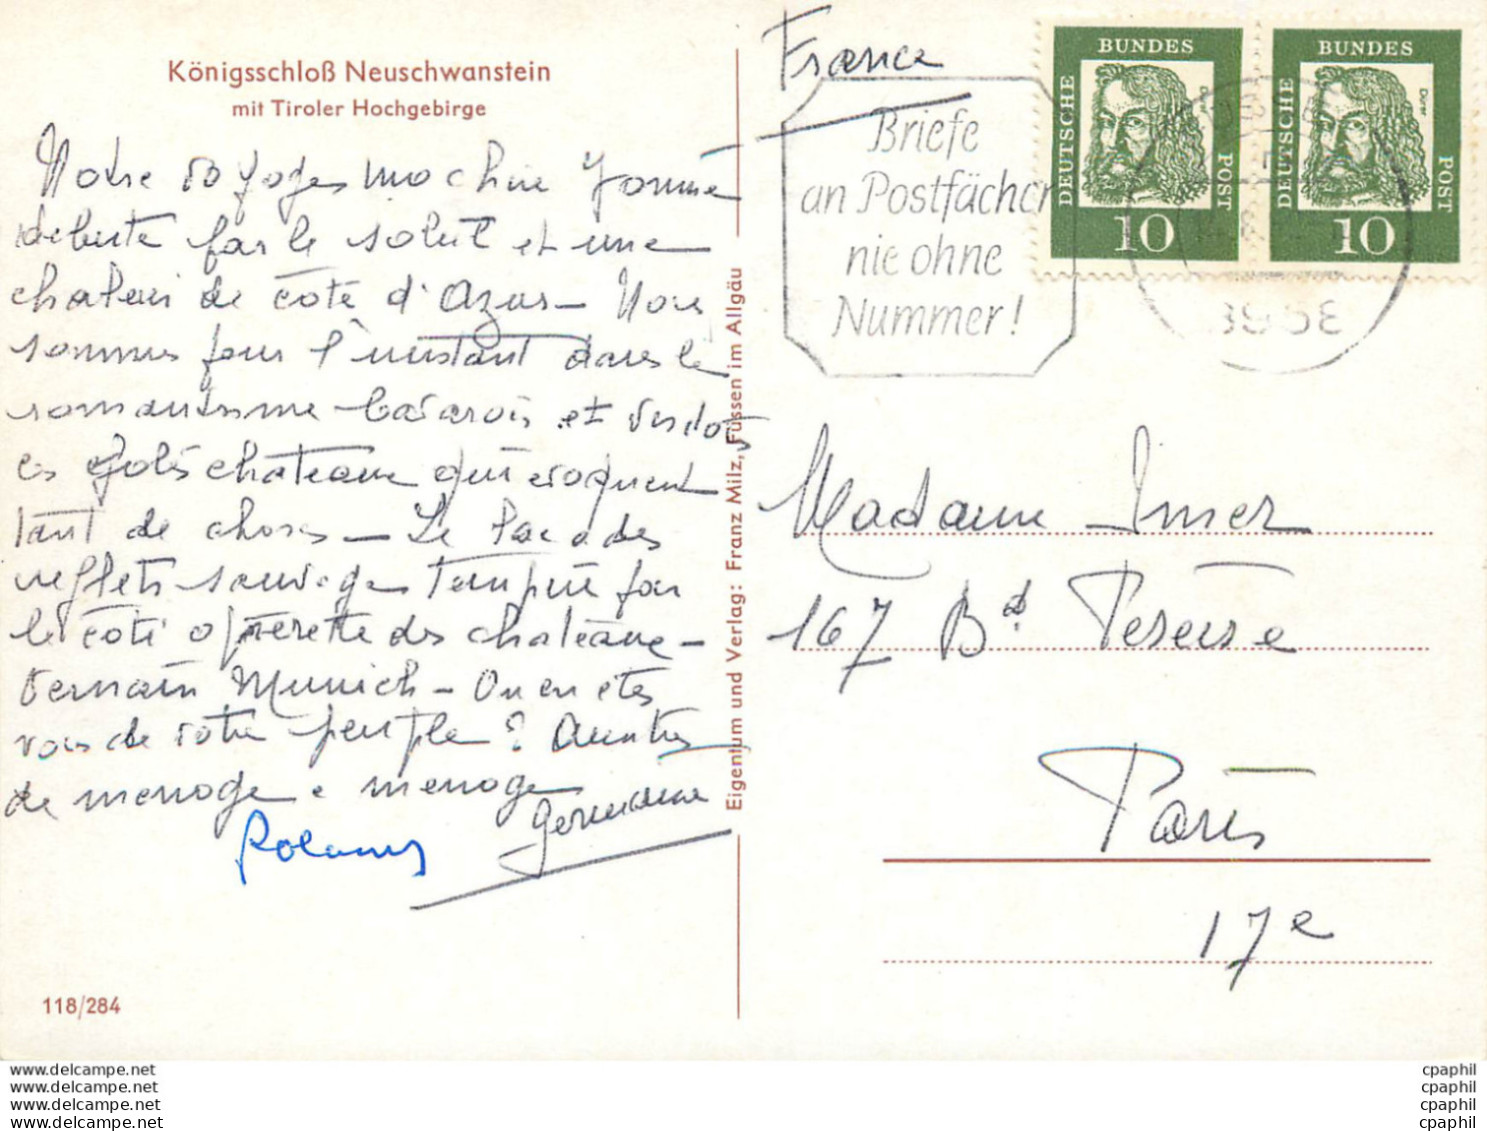 Königsschloß Neuschwanstein
mit Tiroler Hochgebirge
Notre voyages machine
débute par le soleil et une
chaleur de côte d'Azur - Nous
sommes pour l'instant dans le
romantisme bavarois et
ces jolis chateaux qui évoquent
tant de choses - Le Lac a des
reflets sauvages par
le côté opérette des chateaux -
demain Munich - Ou en êtes
vous de votre périple ? Amitiés
de menage a menage
Germaine
118/284
Eigentum und Verlag: Franz Milz, Füssen im Allgäu
France
Briefe
an Postfächer
nie ohne
Nummer!
DEUTSCHE BUNDES POST
Dürer
10
DEUTSCHE BUNDES POST
Dürer
10
8958
Madame Imer
167 Bd Pereire
Paris
17e
www.delcampe.net
www.delcampe.net
www.delcampe.net
www.delcampe.net
cpaphil
cpaphil
cpaphil
cpaphil